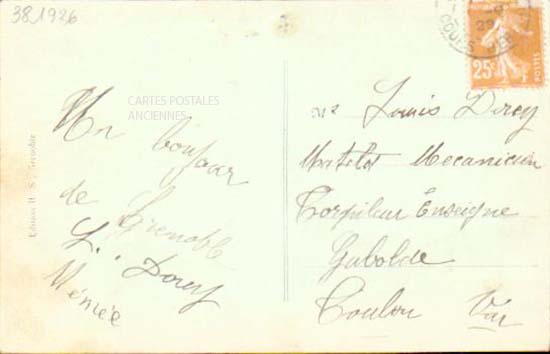 38 1926
CARTES POSTALES
ANCIENNES
Un bonjour
de Grenoble
L. Dorey
Mémée
Mr Louis Dorey
Matelot Mecanicien
Torpilleur Enseigne
Gabolde
Toulon Var
25c
POSTES
29
COURS